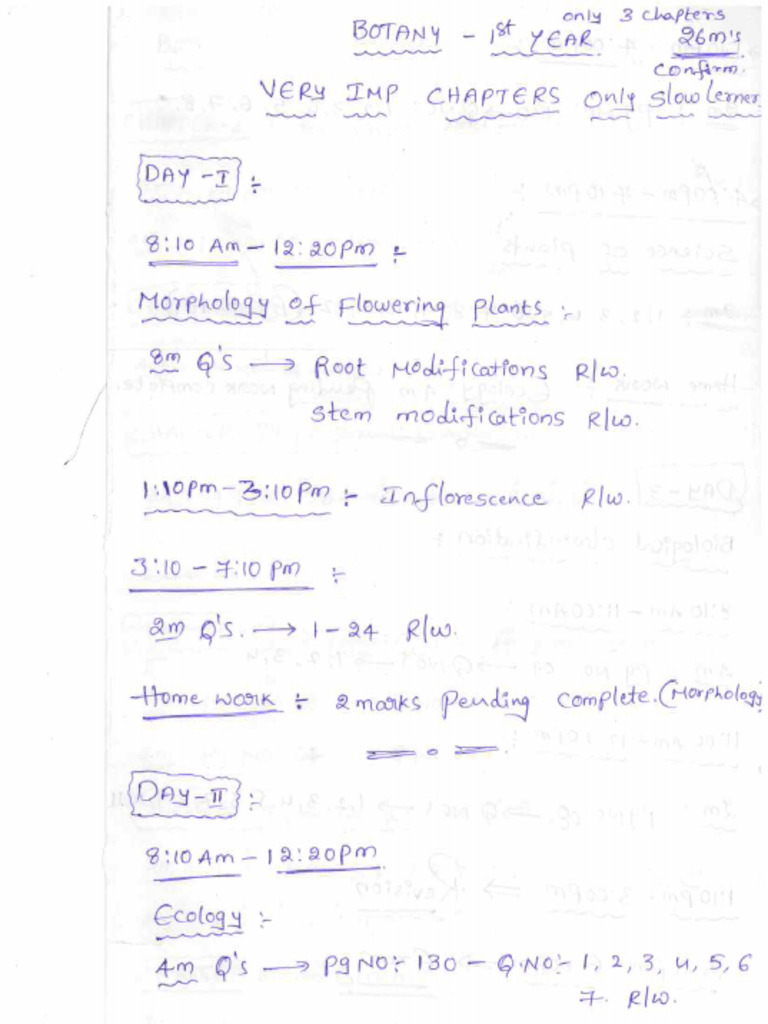 only 3 chapters
BOTANY - 1st YEAR 26m's
confirm.
VERY IMP CHAPTERS Only Slow Lerner
DAY - I :-
8:10 Am - 12:20 Pm :-
Morphology of Flowering Plants :-
8m Q's → Root Modifications R/w.
Stem modifications R/w.
1:10 Pm - 3:10 Pm :- Inflorescence R/w.
3:10 - 7:10 Pm :-
2m Q's. → 1 - 24 R/w.
Home work :- 2 marks Pending complete. (Morphology)
DAY - II :-
8:10 Am - 12:20 pm
Ecology :-
4m Q's → Pg NO :- 130 - Q.NO :- 1, 2, 3, 4, 5, 6
7. R/w.